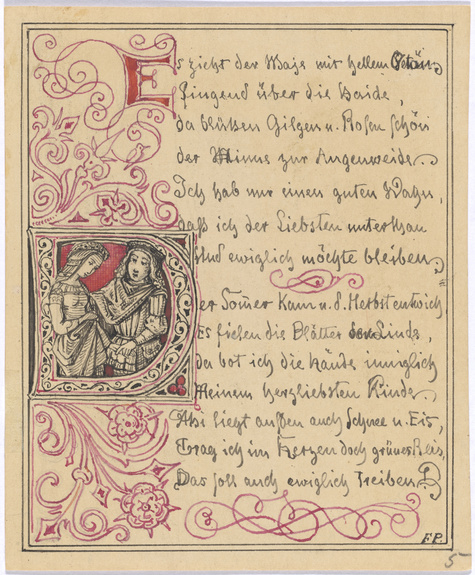 Es zieht der Maje mit hellem Getön
Singend über die Haide,
da blühen Gilgen u. Rosen schön
der Minne zur Augenweide.
Ich hab nur einen guten Wahn,
daß ich der Liebsten unterthan
Und ewiglich möchte bleiben.
Der Som̄er kam u. d. Herbst entwich
Es fielen die Blätter der Linde,
da bot ich die Hände inniglich
Meinem herzliebsten Kinde
Als liegt außen auch Schnee u. Eis,
Trag ich im Herzen doch grünes Reis,
Das soll auch ewiglich treiben.
F.P.
5